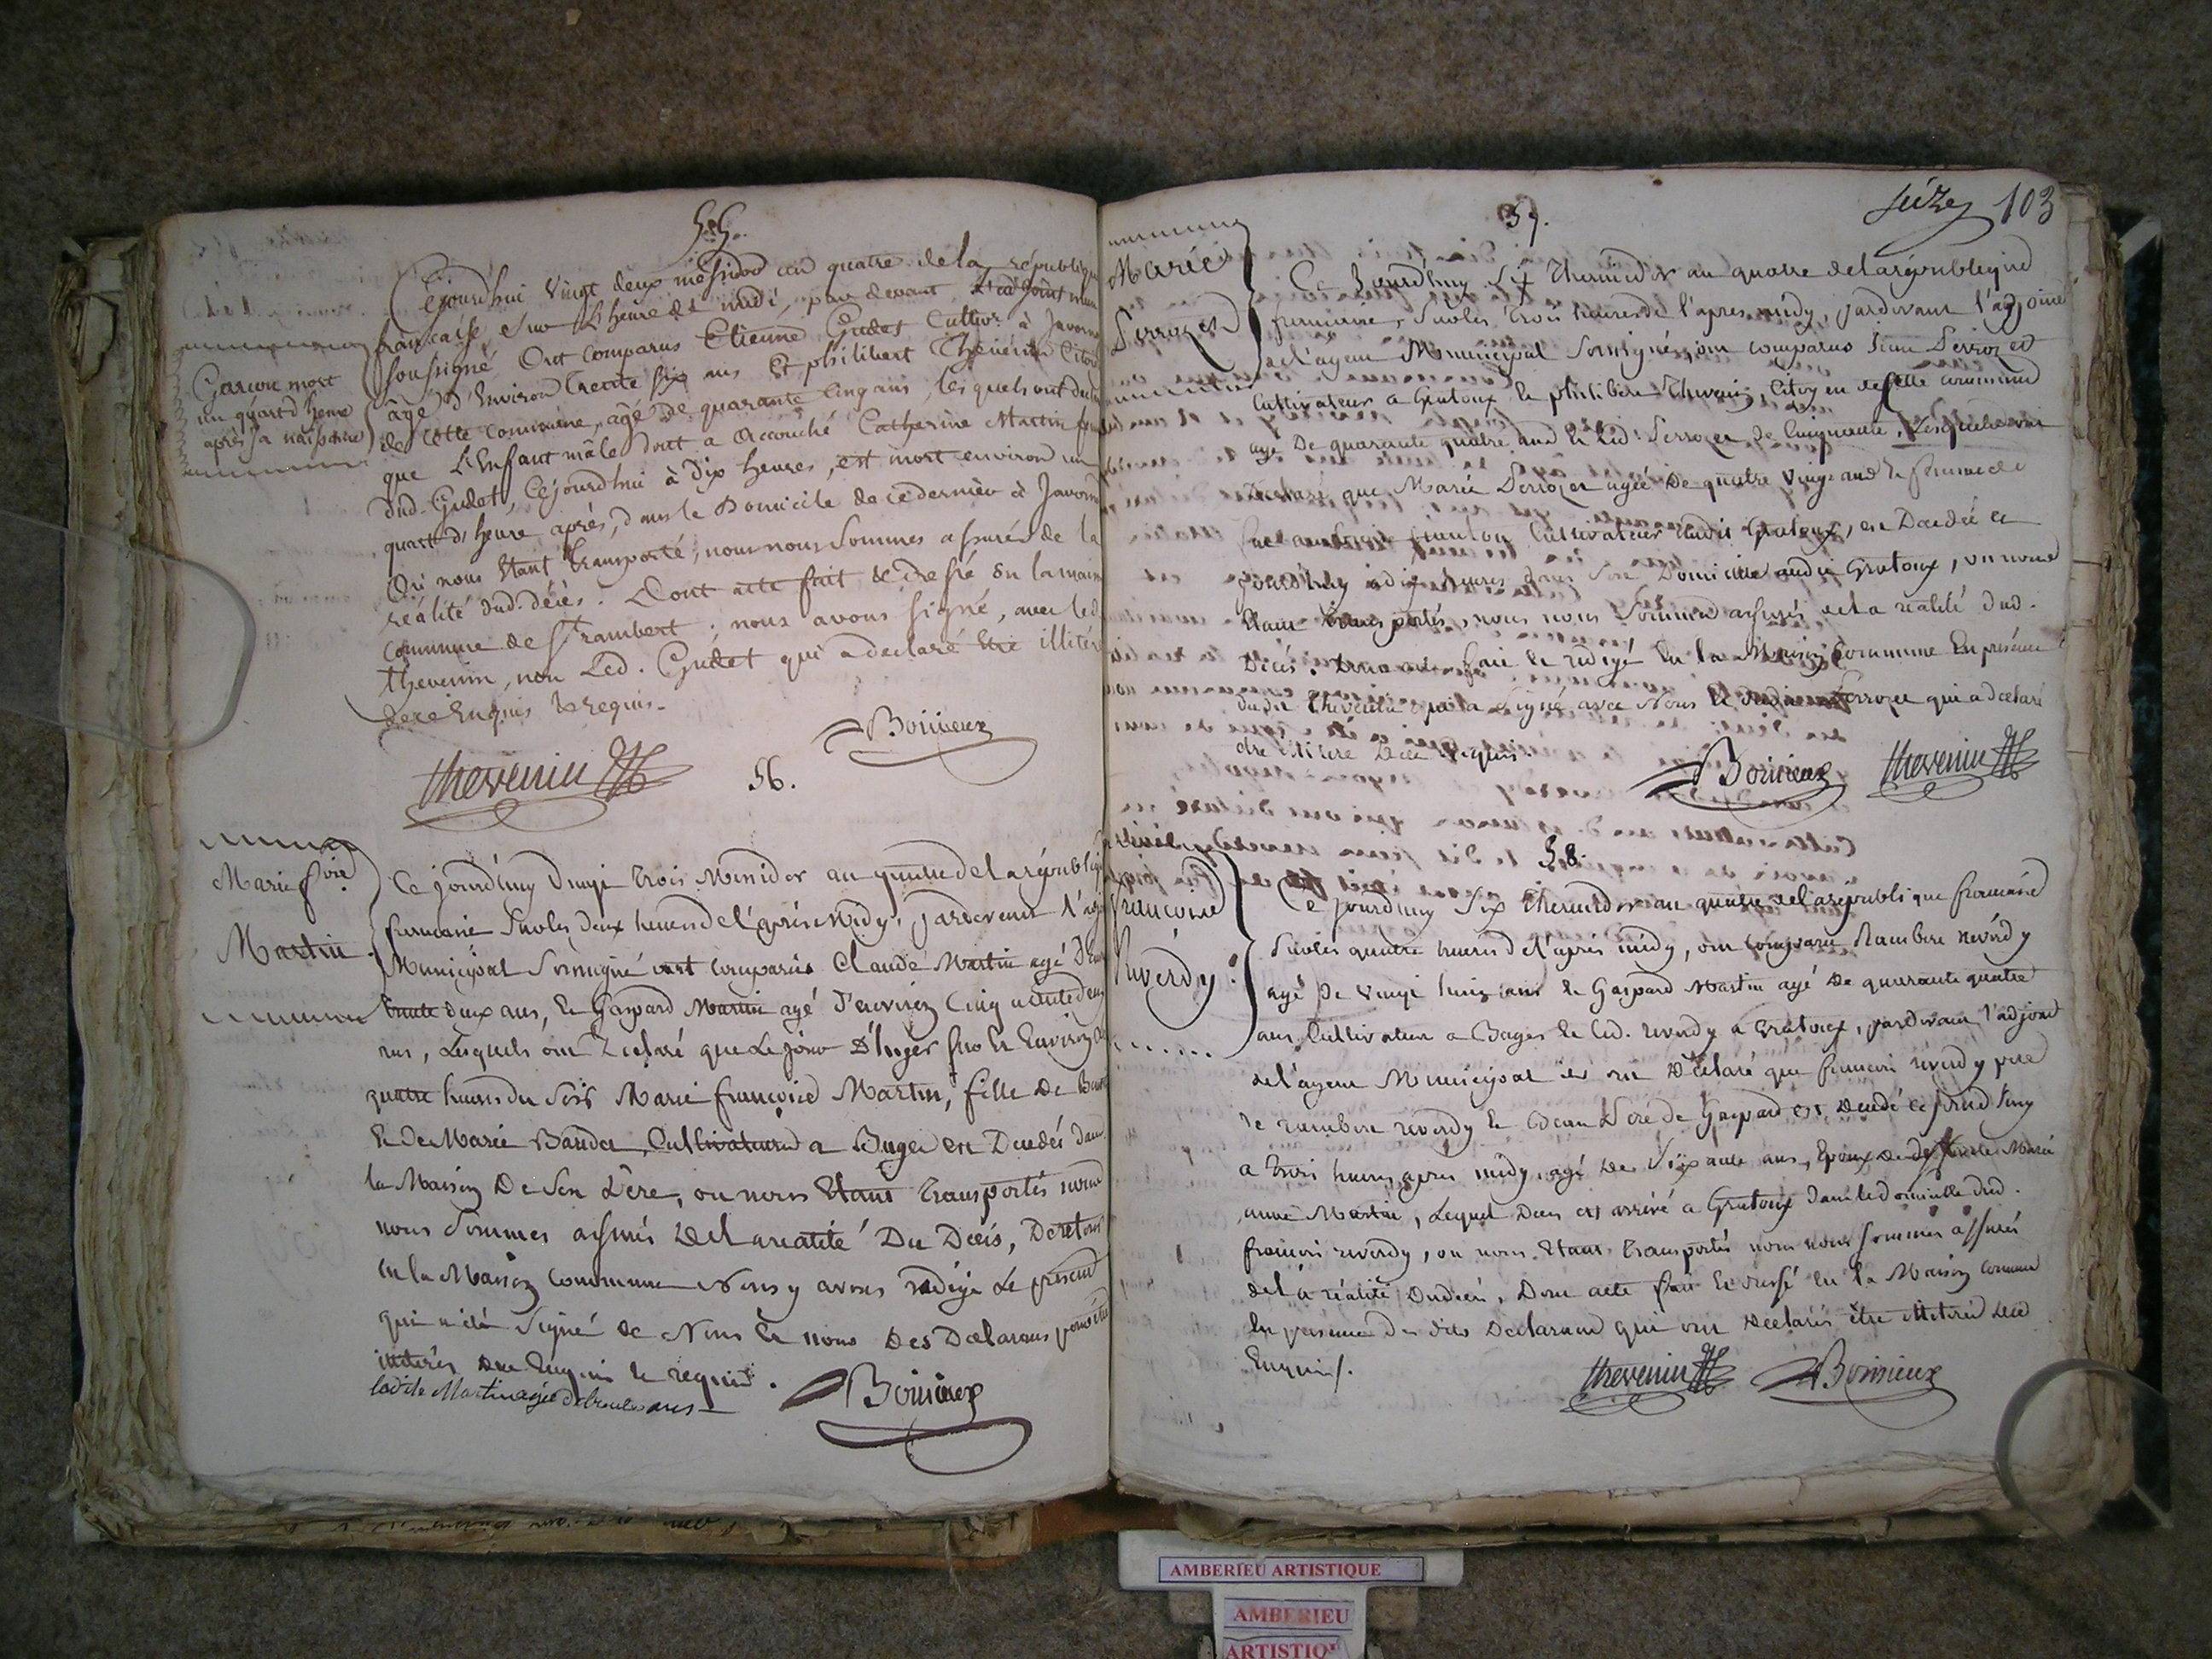 55.
Cejourd'hui vingt deux messidor an quatre de la républiqu
francaise, sur l'heure de midi, par devant l'adjoint mun
soussigné Ont comparus Etienne Gudet Cultivr. à Javorn
âgé d'Environ trente six ans Et philibert Thevenin Citoy
de cette commune, agé de quarante cinq ans, lesquels ont declar
que L'Enfant mâle dont a accouché Catherine Martin fem
dud. Gudet, Cejourdhui à dix heures, est mort environ un
quart d'heure après, dans le Domicile de ce dernier à Javorn
Où nous étant transporté, nous nous sommes assurés de la
réalité dud. décès. Dont acte fait & dressé en la maison
commune de St rambert; nous avons signé, avec led.
thevenin, non Led. Gudet qui a declaré être illiteré
de ce Enquis & requis.
Garcon mort
un quart d'heure
après sa naissance
Boissieux
thevenin
56.
Marie fcoise
Martin
Ce jourd'huy vingt trois Messidor an quatre de la républiqu
francaise sur les deux heures de l'après midy, pardevant l'adj
Municipal soussigné ont comparus Claude Martin agé D'En
trente deux ans, et Gaspard Martin agé d'environ cinq
ans, Lesquels ont déclaré que Le jour D'hyer sur les Environ
quatre heures du soir Marie françoise Martin, fille De
et de Marie Baudet, Cultivateurs a Buges est Decedée dans
la Maison De Son Père, ou nous Etant transportés nous
nous Sommes assurés de la realité Du Décès, De retour
en la Maison commune Nous y avons rédigé Le present
qui a été Signé de Nous et non Des Déclarans pour être
illiterés de ce Enquis et requis.
ladite Martin agée de trente ans
Boissieux
57.
seize 103
Marie
Perrozet
Ce Jourd'huy Six Thermidor an quatre de la république
francaise, Sur les trois heures de l'apres midy, pardevant l'adjoint
de l'agent Municipal Soussigné, ont comparus Jean Perrozet
Cultivateur a Grattoux et philibert Thevenin, Citoyen de cette commune
agé De quarante quatre ans et led. Perrozet de cinquante, Lesquels ont
Declaré que Marie Perrozet agée De quatre vingt ans et femme de
Cultivateur audit Grattoux, est Decedée ce
jourd'huy a dix heures dans Son Domicille audit Grattoux, ou nous
étant transportés, nous nous Sommes assurés de la realité dud.
Décès. Dont acte fait et rédigé En la Maison Commune En présence
dudit Thevenin qui a Signé avec Nous et non ledit Perrozet qui a declaré
être illitéré De ce requis
Boissieux thevenin
58.
françoise
Réverdy
Ce jourd'huy Six Thermidor an quatre de la république francaise
Sur les quatre heures de l'après midy, ont comparu Rambert reverdy
agé De vingt huit ans et Gaspard Martin agé De quarante quatre
ans Cultivateur a Buges et led. reverdy a Grattoux, pardevant l'adjoint
de l'agent Municipal et ont Déclaré que francois reverdy père
de rambert reverdy et Beau Père de Gaspard est Decedé ce jourd'huy
a trois heures apres midy, agé De Soixante ans, Epoux de defunte Marie
anne Martin, Lequel Deces est arrivé a Grattoux dans le domicille dud.
francois reverdy, ou nous Etant transportés nous nous sommes assurés
de la réalité Dudecés, Dont acte fait et dressé en la Maison commune
En présence des dits Declarans qui ont Declarés être illiterés de ce
Enquis.
thevenin Boissieux
AMBERIEU ARTISTIQUE
AMBERIEU
ARTISTIQ